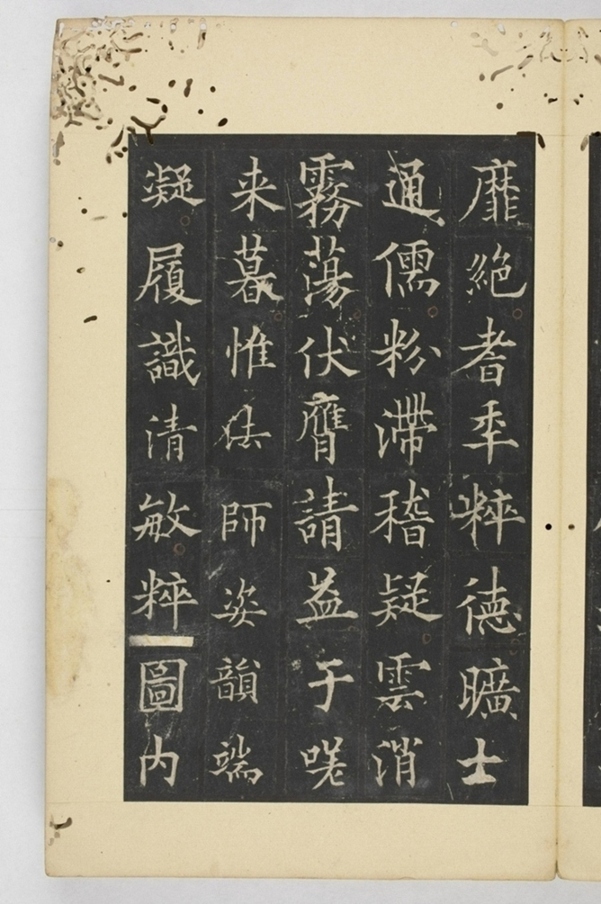 靡絶耆年粹德曠士
通儒粉滯稽疑雲消
霧蕩伏膺請益于嗟
来暮惟法師姿韻端
凝履識清敏粹圖内